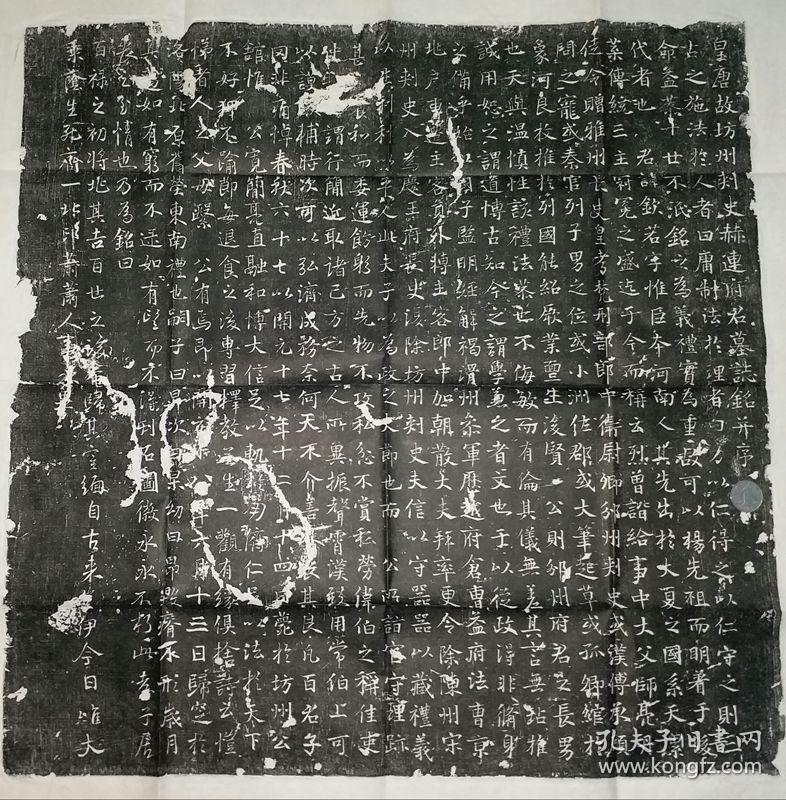 皇唐故坊州刺史赫連府君墓誌銘并序
古之施法於人者曰庸制法於理者曰方以仁得之以仁守之則
命益業十世不泯銘之為義禮實為重故可以楊先祖而明著于後
代者也君諱欽若字惟臣本河南人其先出於大夏之國系天
葉傳統三主冠冕之盛迄于今而稱云列曾諧給事中大父師
位令贈雅州長史皇考梵刑部郎中衛尉卿邠州刺史或漢傳承顧
問之寵或秦官列子男之位或小洲佐郡或大筆起草或孤卿綰
象河良枚推於列國能紹厥業亶生浚賢公則邠州府君之長男
也天與溫慎性該禮法榮世不侮敏而有倫其儀無差其言無玷推
誠用恕之謂道博古知今之謂學兼之者文也于以從政得非脩身
之備乎始以國子監明經解褐渭州參軍歷越府倉曹益府法曹京
兆戶曹遷主客員外轉主客郎中加朝散大夫拜率更令除陳州宋
州刺史入為慶王府長史後除坊州刺史夫信以守器器以藏禮義
以生利利以平人此夫子以為政之大節也而公所諧官守理跡
甚良和而委運飭躬而先物不攻私忿不賞私勞偉伯之稱佳吏
謂行簡近取諸己方之古人所異振聲霄漢頗用常伯上可
以謨猷補時次可以弘濟成務奈何天不介喜其良凡百君子
罔非痛悼春秋六十七以開元十七年十二月十四日薨於坊州公
館惟公寬簡亮直融和博大信足以軌物仁足以法於天下
不好狎不踰節每退食之後專習釋教苦生一觀有緣俱捨詩云愷
悌者人之父母繫公有焉即以開元十八年六月十三日歸窆於
洛陽北原舊塋東南禮也嗣子曰晁次曰景幼曰昂毀瘠不形歲月
其逝如有窮而不逮如有望而不得刊石圖徽永永不朽此孝子居
喪之至情也乃為銘曰
百祿之初將兆其吉百世之後當歸其室緬自古來伊今日雄夫
乘蔭生死齊一北邙蕭蕭人事
孔夫子旧書网
www.kongfz.com